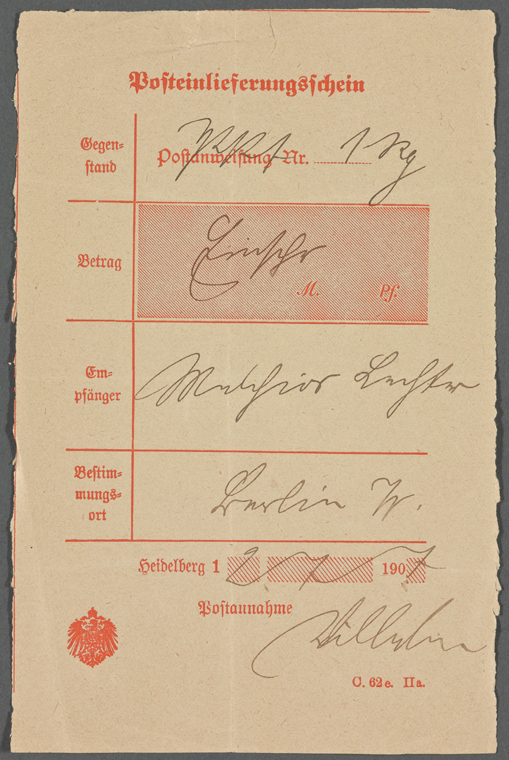 Posteinlieferungsschein
Gegen-
stand
Postanweisung Nr. 1 Kg
Betrag
Einschr
M. Pf.
Em-
pfänger
Melchior Lechter
Bestim-
mungs-
ort
Berlin W.
Heidelberg 1 2/7 1907
Postannahme
C. 62e. IIa.